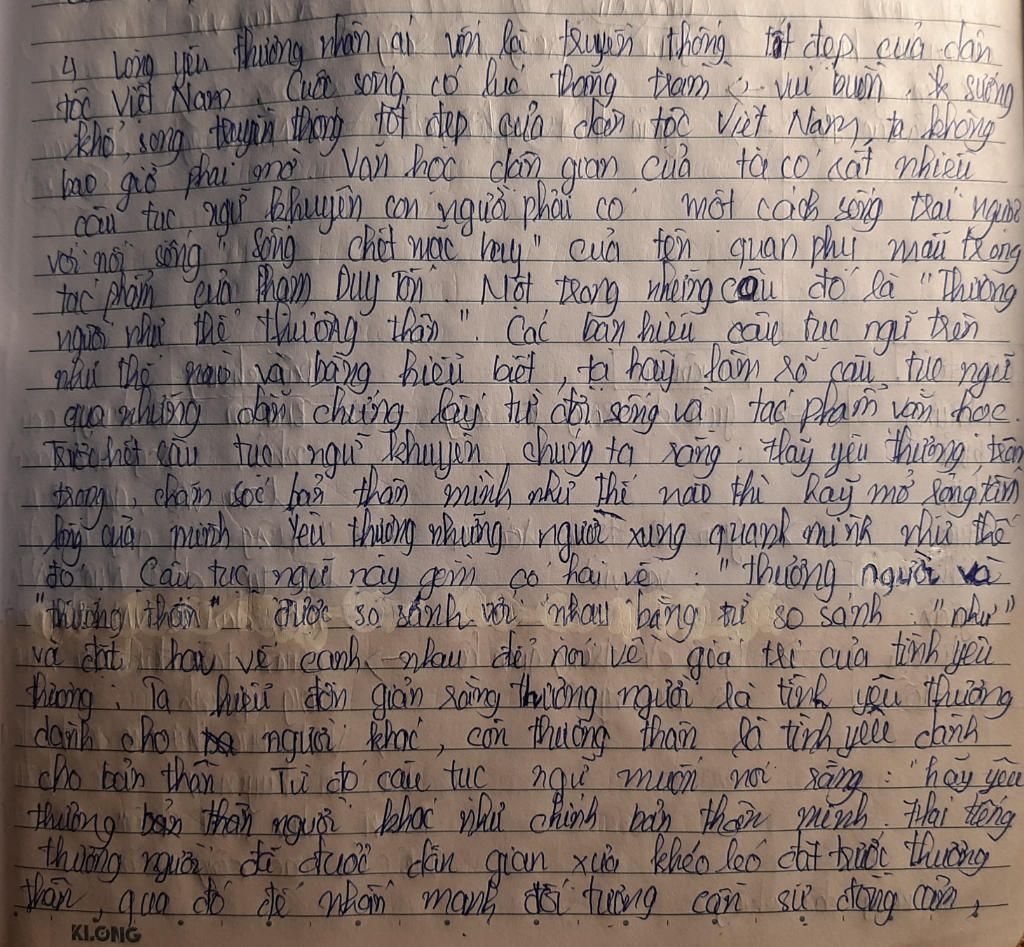 4 Lòng yêu thương nhân ái vốn là truyền thống tốt đẹp của dân
tộc Việt Nam. Cuộc sống có lúc thăng trầm, vui buồn, sướng
khổ, song truyền thống tốt đẹp của dân tộc Việt Nam, ta không
bao giờ phai mờ. Văn học dân gian của ta có rất nhiều
câu tục ngữ khuyên con người phải có một cách sống trái ngược
với nối sống "sống chết mặc bay" của tên quan phụ mẫu trong
tác phẩm của Phạm Duy Tốn. Một trong những câu đó là "Thương
người như thể thương thân". Các bạn hiểu câu tục ngữ trên
như thế nào và bằng hiểu biết, ta hãy làm rõ câu tục ngữ
qua những dẫn chứng lấy từ đời sống và tác phẩm văn học.
Trước hết câu tục ngữ khuyên chúng ta rằng: Hãy yêu thương, trân
trọng, chăm sóc bản thân mình như thế nào thì hãy mở rộng tấm
lòng của mình. Yêu thương những người xung quanh mình như thế
đó. Câu tục ngữ này gồm có hai vế: "thương người và
"thương thân" được so sánh với nhau bằng từ so sánh "như"
và đặt hai vế cạnh nhau để nói về giá trị của tình yêu
thương: Ta hiểu đơn giản rằng thương người là tình yêu thương
dành cho người khác, còn thương thân là tình yêu dành
cho bản thân. Từ đó câu tục ngữ muốn nói rằng: "hãy yêu
thương bản thân người khác như chính bản thân mình. Hai tiếng
thương người đã được dân gian xưa khéo léo đặt trước thương
thân, qua đó để nhấn mạnh đối tượng cần sự đồng cảm,
KLONG